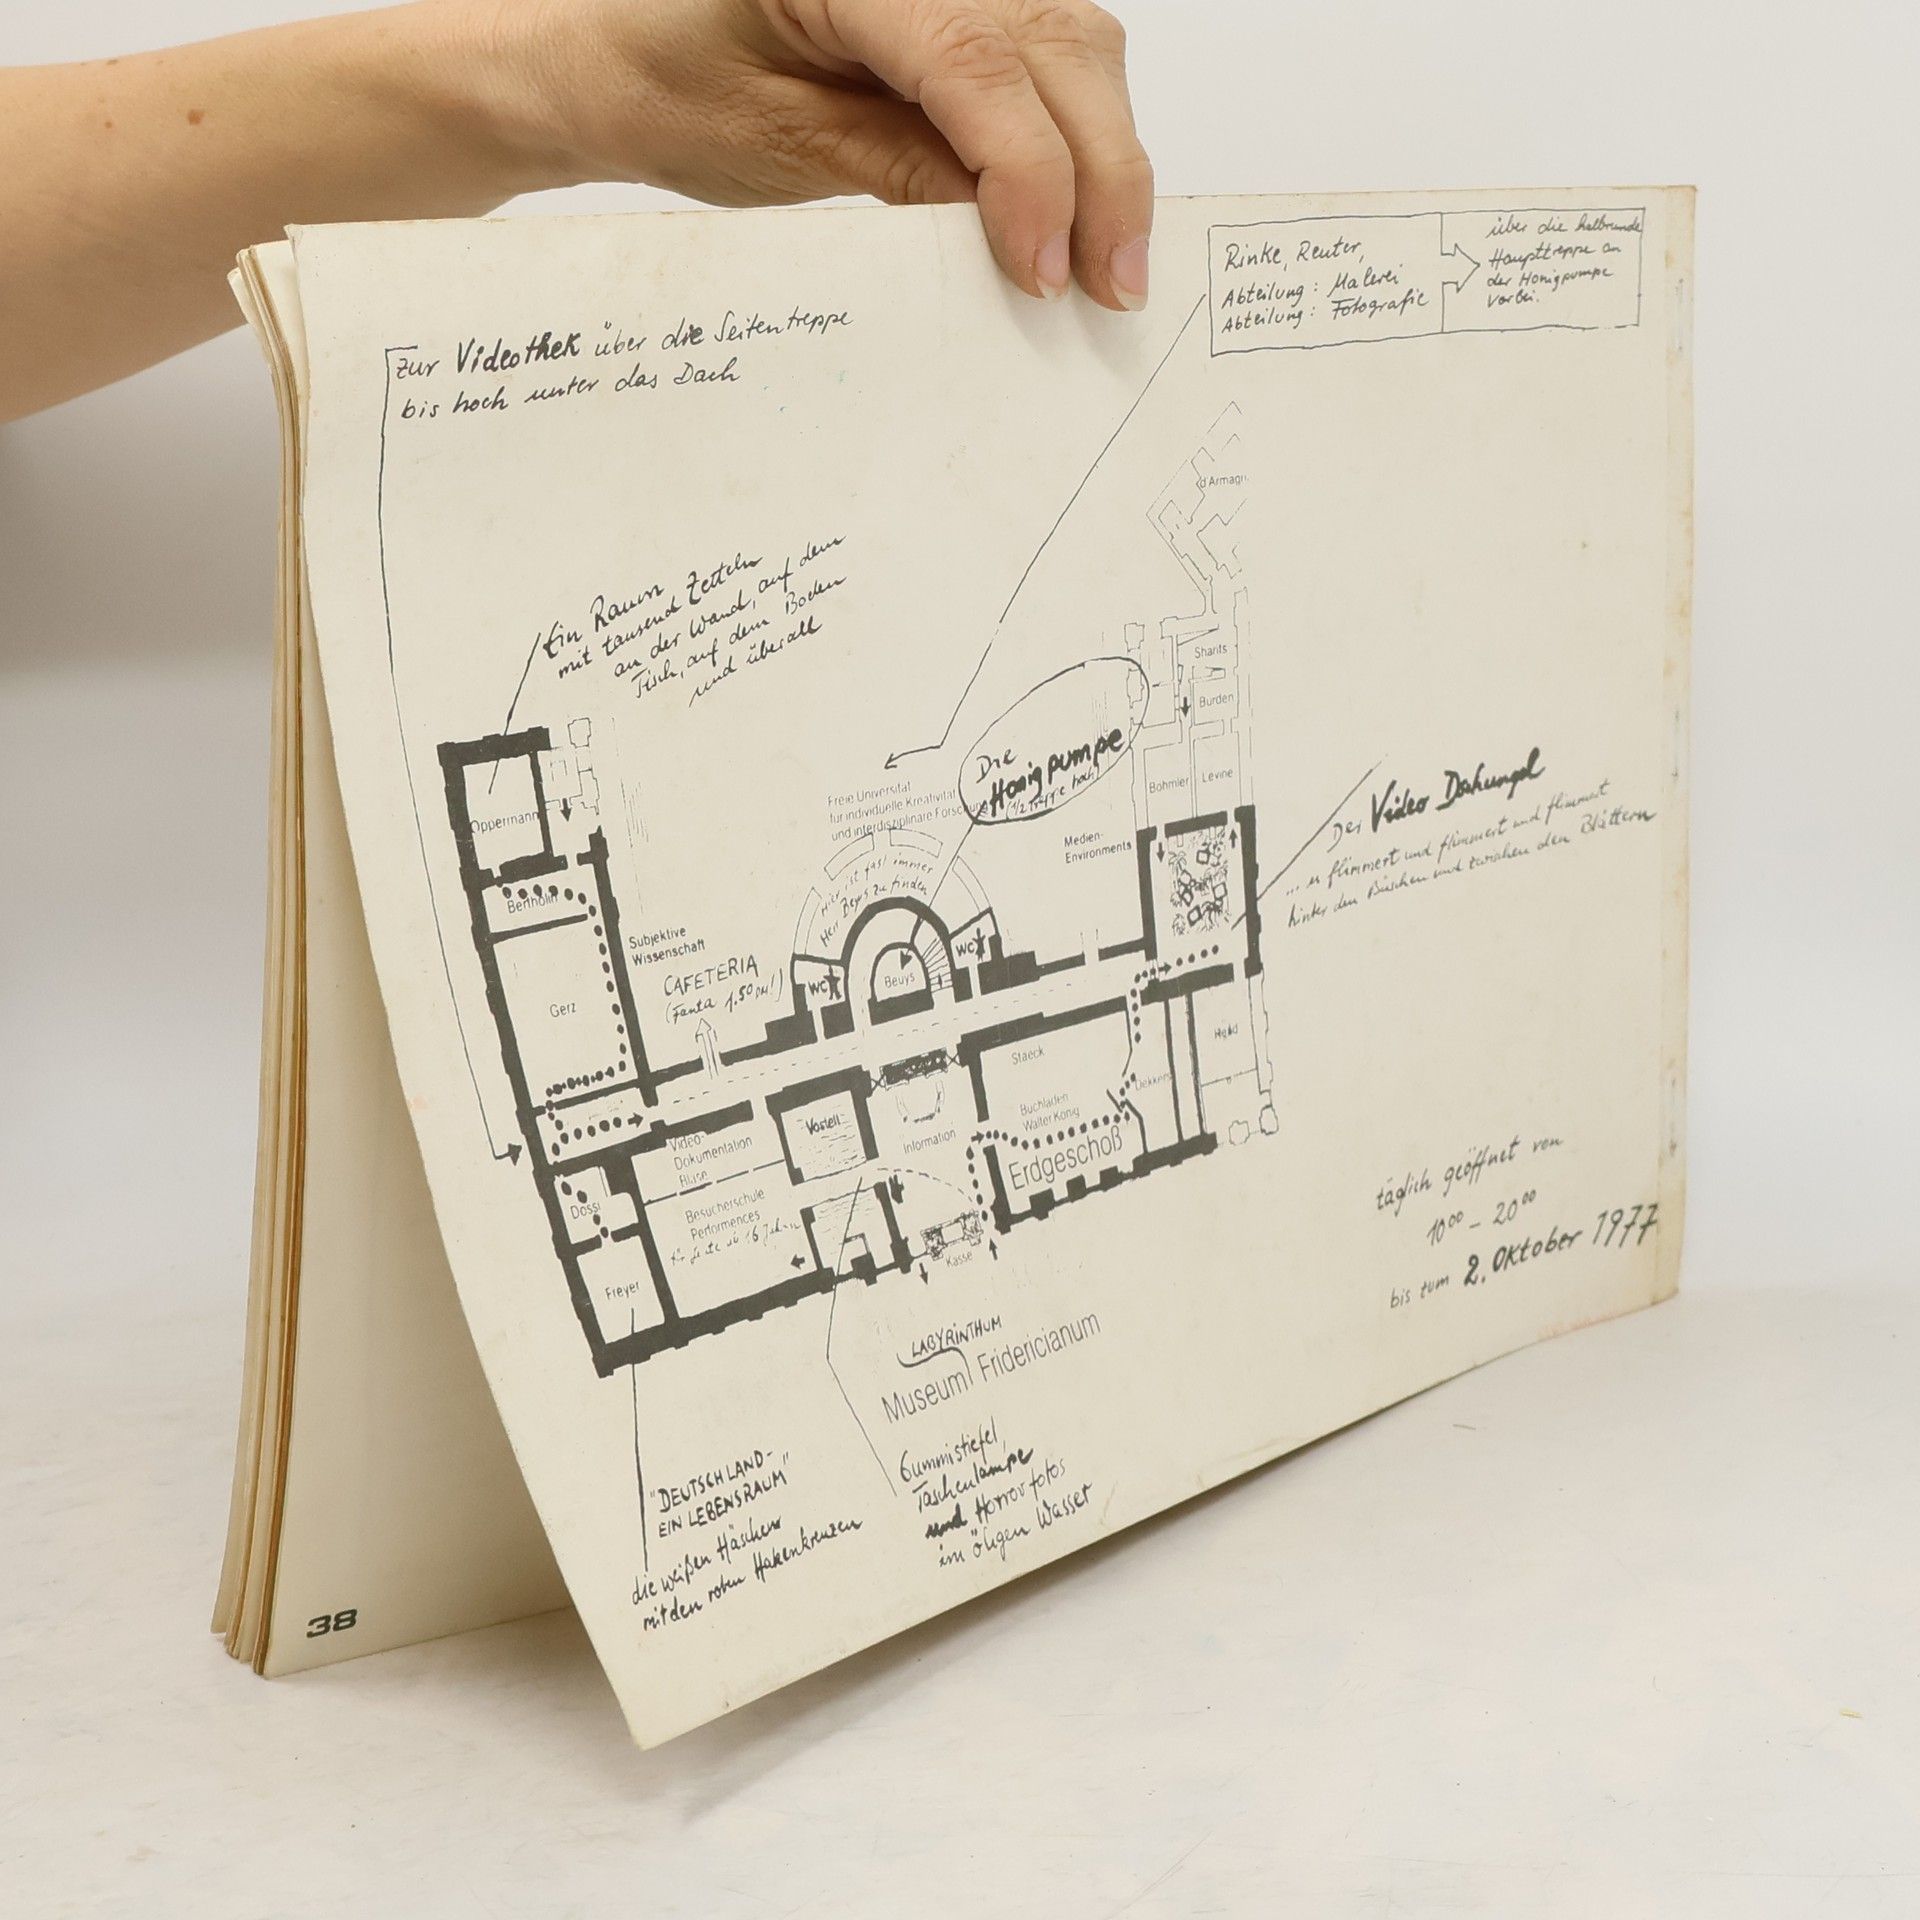 zur Videothek über die Seitentreppe
bis hoch unter das Dach
Rinke, Reuter,
Abteilung: Malerei
Abteilung: Fotografie
über die halbrunde
Haupttreppe an
der Honigpumpe
vorbei.
Ein Raum
mit tausend Zetteln
an der Wand, auf dem
Tisch, auf dem Boden
und überall
d'Armagn
Sharits
Burden
Bohmler
Levine
Die
Honigpumpe
(1/2 Treppe hoch)
Freie Universität
für individuelle Kreativität
und interdisziplinäre Forschung
Hier ist fast immer
Herr Beuys zu finden
Medien-
Environments
Der Video Dschungel
... es flimmert und flimmert und flimmert
hinter den Büschen und zwischen den Blättern
Oppermann
Bertholin
Subjektive
Wissenschaft
Gerz
CAFETERIA
(Fanta 1.50 DM!)
WC
Beuys
WC
Staeck
Buchladen
Walter König
Dekkers
Erdgeschoß
Information
Vostell
Video-
Dokumentation
Besucherschule
Performences
Dossi
Freyer
Kasse
täglich geöffnet von
10⁰⁰ - 20⁰⁰
bis zum 2. Oktober 1977
LABYRINTHUM
Museum Fridericianum
Gummistiefel,
Taschenlampe
und Horrorfotos
im öligen Wasser
"DEUTSCHLAND-
EIN LEBENSRAUM"
die weißen Häschen
mit den roten Hakenkreuzen
38